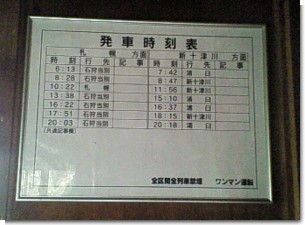 発車時刻表
札幌方面 新十津川方面
時刻 行先 記事 時刻 行先 記事
6:13 石狩当別 7:42 浦臼
8:28 石狩当別 8:47 新十津川
10:22 札幌 11:56 新十津川
13:38 石狩当別 15:10 浦臼
16:22 石狩当別 16:37 浦臼
17:51 石狩当別 18:15 新十津川
20:03 石狩当別 20:18 浦臼
(共通記事欄)
全区間全列車禁煙 ワンマン運転